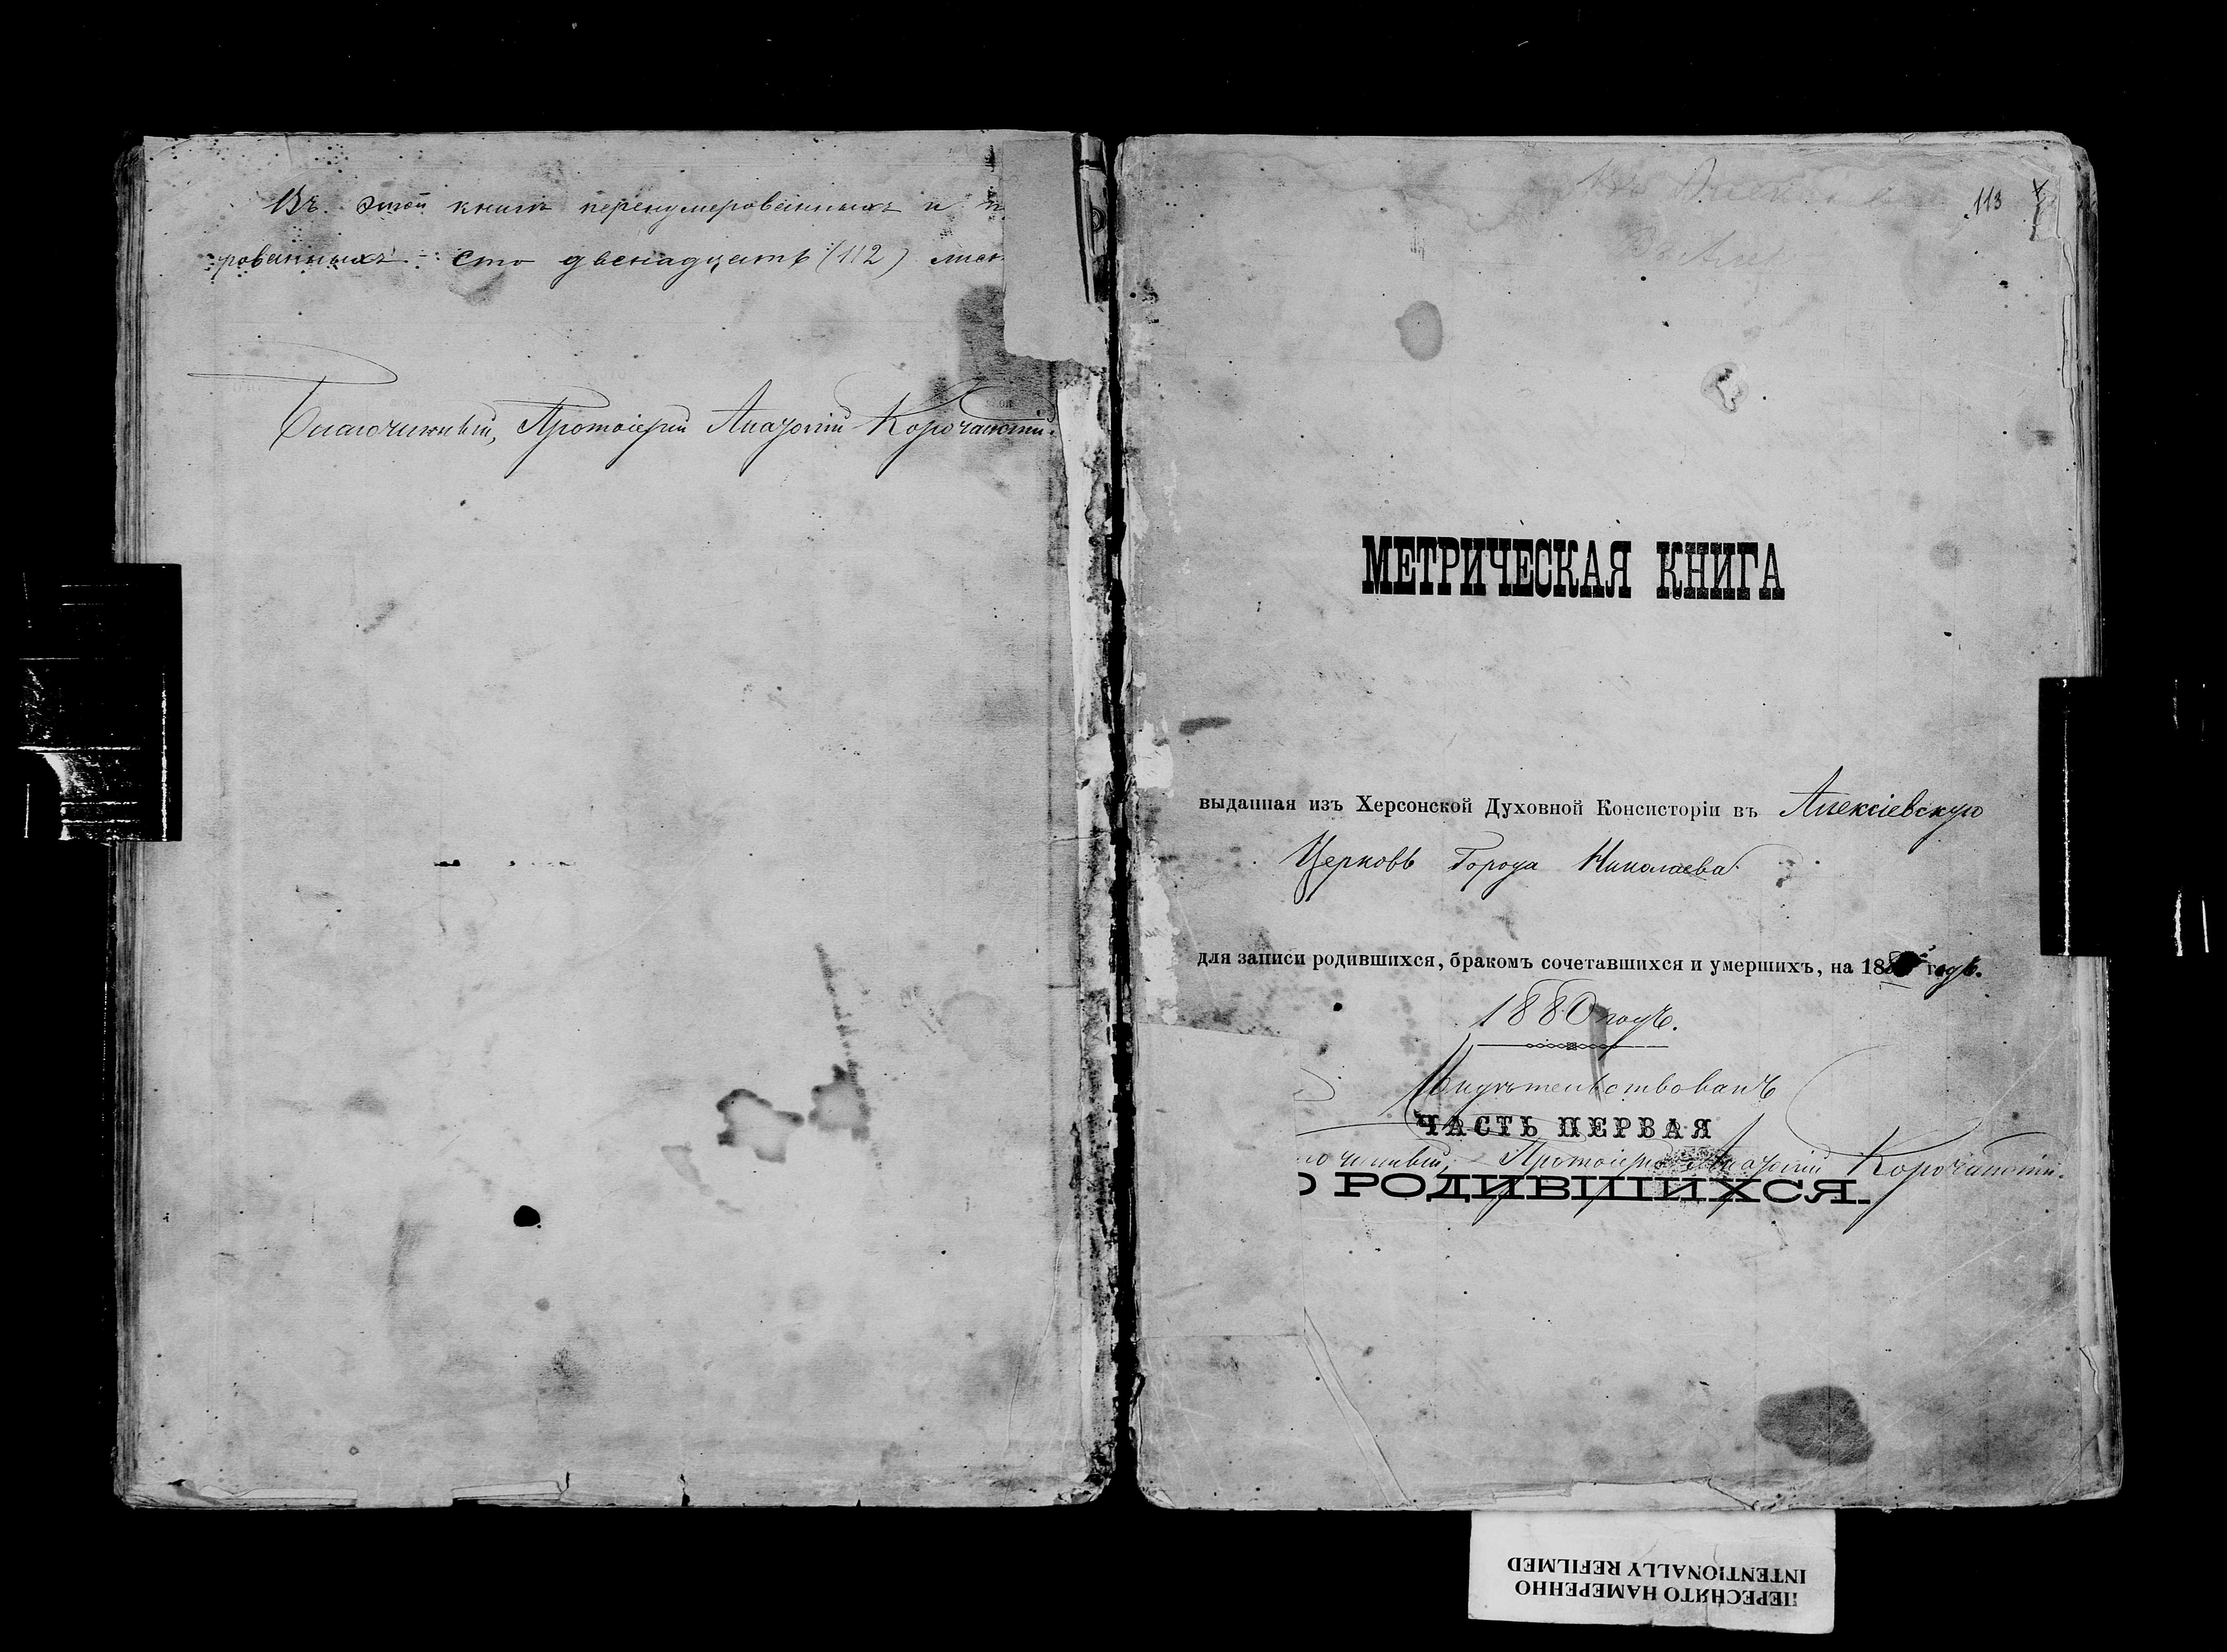 Въ этой книгѣ перенумерованныхъ и п
рованныхъ - сто двенадцать (112) лист
Благочинный, Протоіерей Корочанскій.
113
МЕТРИЧЕСКАЯ КНИГА
выданная изъ Херсонской Духовной Консисторіи въ Алексіевскую
Церковь Города Николаева
для записи родившихся, бракомъ сочетавшихся и умершихъ, на 188 годъ.
1880 годъ.
Свидѣтельствовалъ
ЧАСТЬ ПЕРВАЯ
гочинный, Протоіерей Корочанскій.
О РОДИВШИХСЯ.
ПЕРЕСНЯТО НАМЕРЕННО
INTENTIONALLY REFILMED